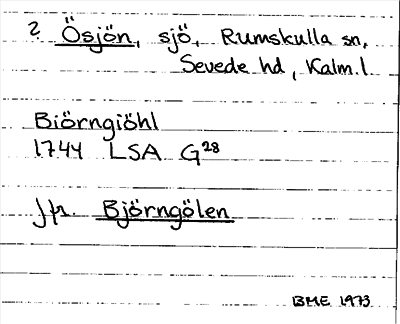 ? Ösjön, sjö, Rumskulla sn,
Sevede hd, Kalm. l
Biörngiöhl
1744 LSA G28
Jfr. Björngölen
BME 1973